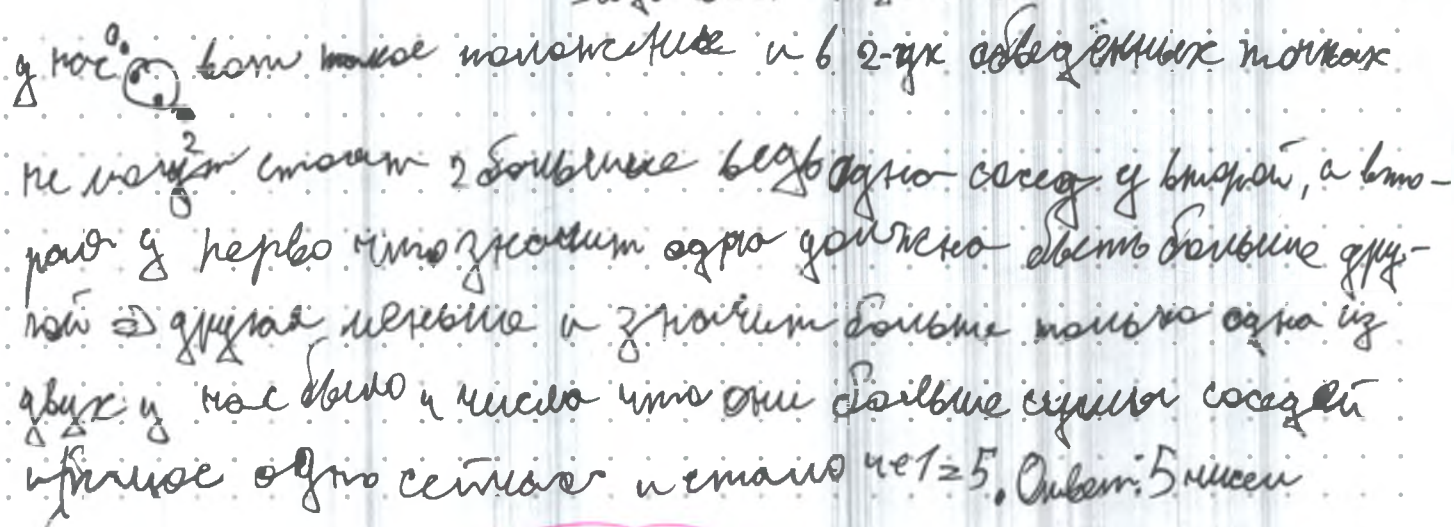 у нас вот такое положение и в 2-ух обведённых точках
не могут стоят 2 большие ведь одно сосед у второй, а вто-
рой у перво что значит одно должно быть больше дру-
гой => другая меньше и значит больше только одна из
двух у нас было 4 числа что они больше суммы соседей
одно сейчас и стало 4+1=5. Ответ: 5 чисел